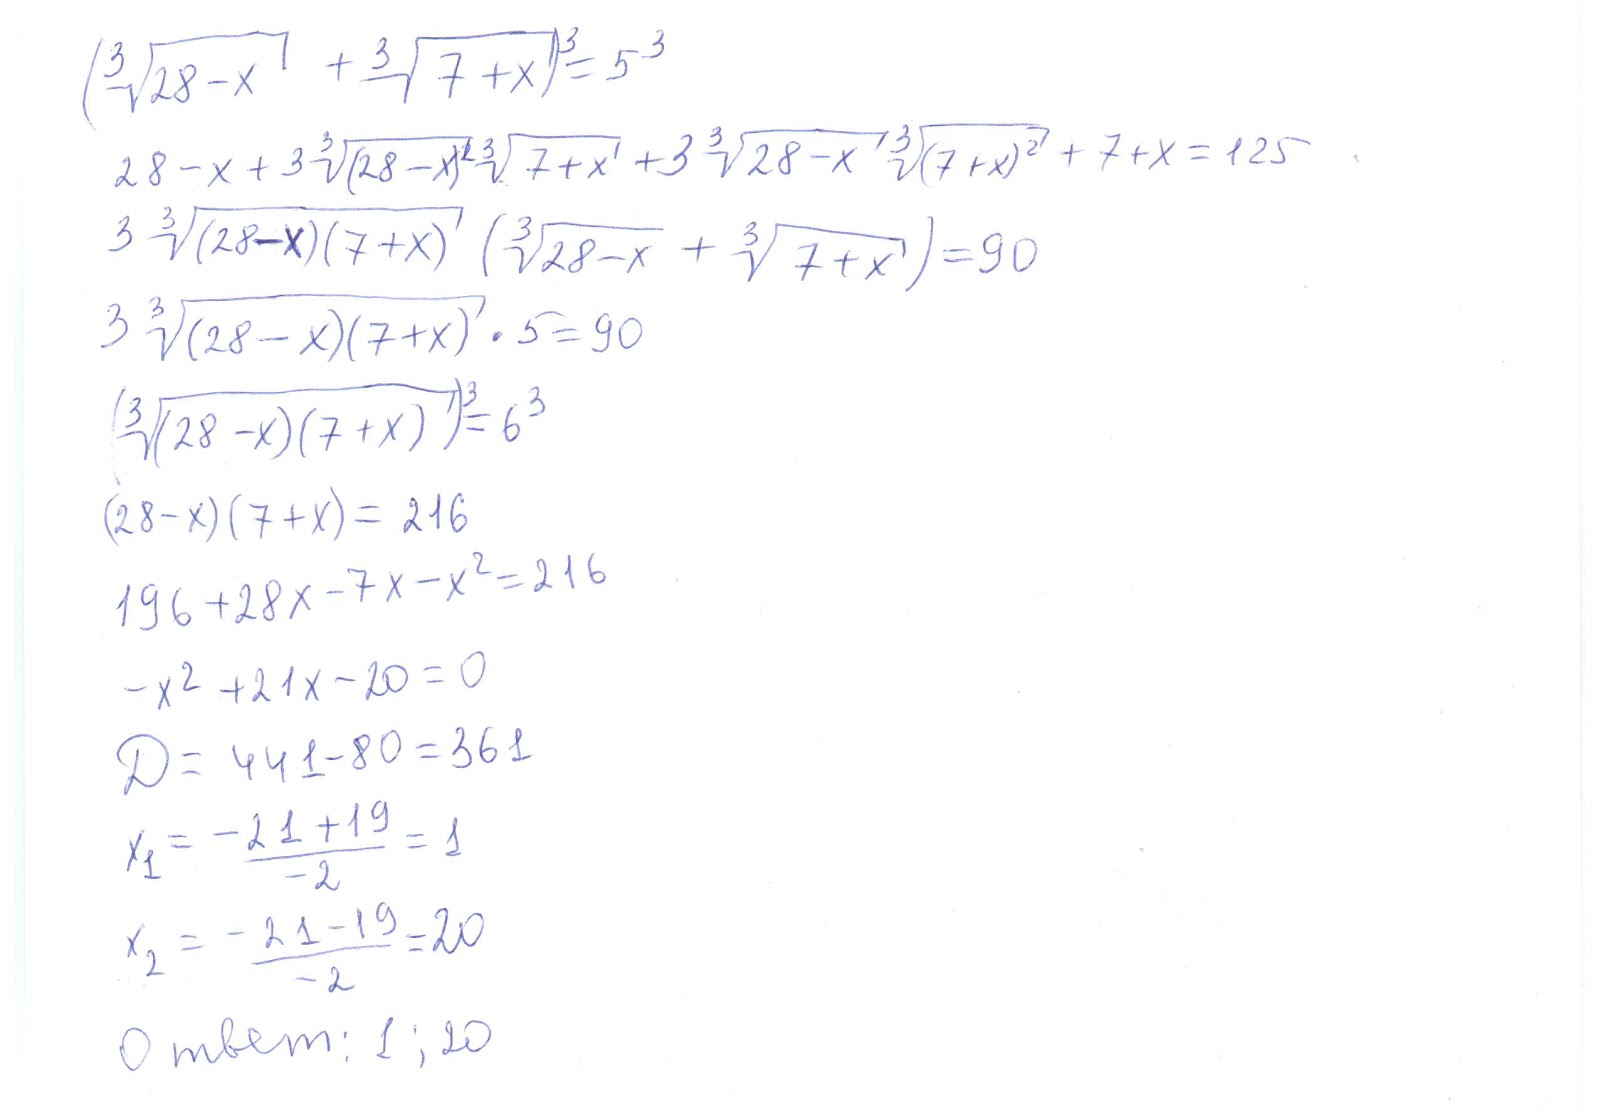 (∛(28-x) + ∛(7+x))³ = 5³
28-x + 3∛(28-x)² ∛(7+x) + 3∛(28-x) ∛(7+x)² + 7+x = 125
3∛((28-x)(7+x)) (∛(28-x) + ∛(7+x)) = 90
3∛((28-x)(7+x)) · 5 = 90
(∛((28-x)(7+x)))³ = 6³
(28-x)(7+x) = 216
196 + 28x - 7x - x² = 216
-x² + 21x - 20 = 0
D = 441 - 80 = 361
x₁ = (-21+19)/(-2) = 1
x₂ = (-21-19)/(-2) = 20
Ответ: 1; 20